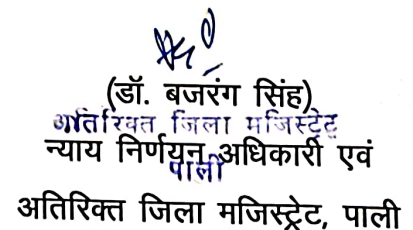 (डॉ. बजरंग सिंह)
अतिरिक्त जिला मजिस्ट्रेट
न्याय निर्णयन अधिकारी एवं
पाली
अतिरिक्त जिला मजिस्ट्रेट, पाली